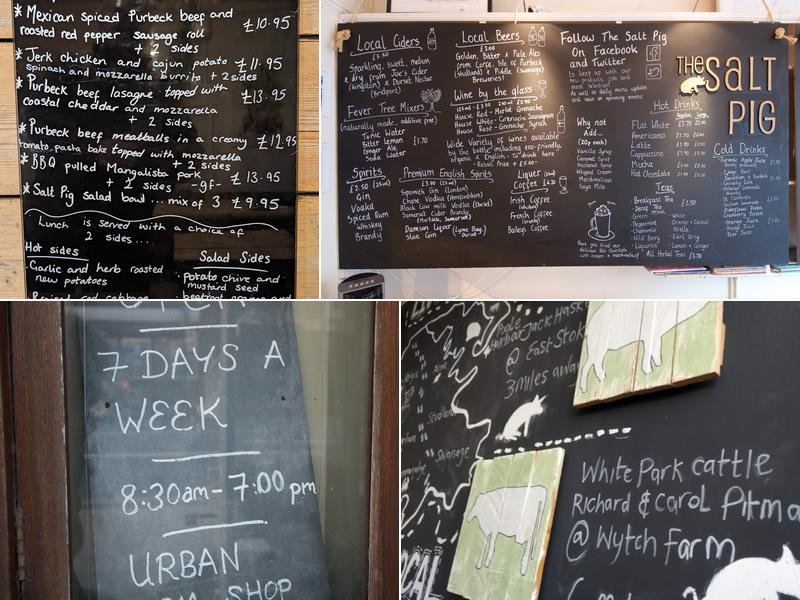 * Mexican spiced Purbeck beef and
roasted red pepper sausage roll £10.95
+ 2 sides
* Jerk chicken and cajun potato £11.95
spinach and mozzarella burrito + 2 sides
* Purbeck beef lasagne topped with £13.95
coastal cheddar and mozzarella
+ 2 sides
* Purbeck beef meatballs in a creamy £12.95
tomato pasta bake topped with mozzarella
+ 2 sides
* BBQ pulled Mangalista pork
+ 2 sides -gf- £13.95
* Salt Pig salad bowl ... mix of 3 £9.95
Lunch is served with a choice of
2 sides....
Hot sides
Garlic and herb roasted
new potatoes
Salad Sides
potato chive and
mustard seed
Local Ciders
£3.60
Sparkling, sweet, medium
& dry from Joe's Cider
(Kingston) & Dorset Nectar
(Bridport)
Fever Tree Mixers
(naturally made, additive free)
Tonic Water
Bitter Lemon
Ginger Ale
Soda Water
£1.70
Spirits
£2.50 (25ml)
Gin
Vodka
Spiced Rum
Whiskey
Brandy
Local Beers
Golden, Bitter & Pale Ales
from Corfe, Isle of Purbeck
(Studland) & Piddle (Swanage)
Breweries!
Wine by the glass
House Red - Merlot Grenache
House White - Grenache Sauvignon
House Rose - Grenache Syrah
Wide Variety of wines available
by the bottle including eco-friendly,
organic & English - To drink here
Retail Price + £5.00
Premium English Spirits
£3.90 (25ml)
Sipsmith Gin (London)
Chase Vodka (Herefordshire)
Black Cow milk Vodka (Dorset)
Somerset Cider Brandy
Damson Liquor (Lyme Bay,
Sloe Gin Dorset)
Liquor (25ml)
Coffee £4.20
Irish Coffee
(Whiskey)
French Coffee
(Brandy)
Baileys Coffee
Follow The Salt Pig
On Facebook
and Twitter
to keep up with our
new products, pigs and
meat selection!
As well as daily menu updates
and news on upcoming events!
Why not
Add...
(20p each)
Vanilla Syrup
Caramel Syrup
Hazelnut Syrup
Whipped Cream
Marshmallows
Soya Milk
Have you tried our
delicious Hot Chocolate
with cream & marshmallows?
Hot Drinks
Regular Large
Flat White
Americano
Latte
Cappuccino
Mocha
Hot Chocolate
Teas
Breakfast Tea £1.50
Decaf Tea
Green
Peppermint
Chamomile
Wild Berry
Liquorice
White
Orange + Coconut
Nettle
Earl Grey
Lemon + Ginger
All Herbal Teas £1.70
THE SALT
PIG
Cold Drinks
7 DAYS A
WEEK
8:30am-7:00pm
URBAN
SHOP
Poole
Harbour
Jack Hask
@ East Stok
3 miles away
Studland
Swanage
White Park cattle
Richard & Carol Pitma
@ Wytch Farm